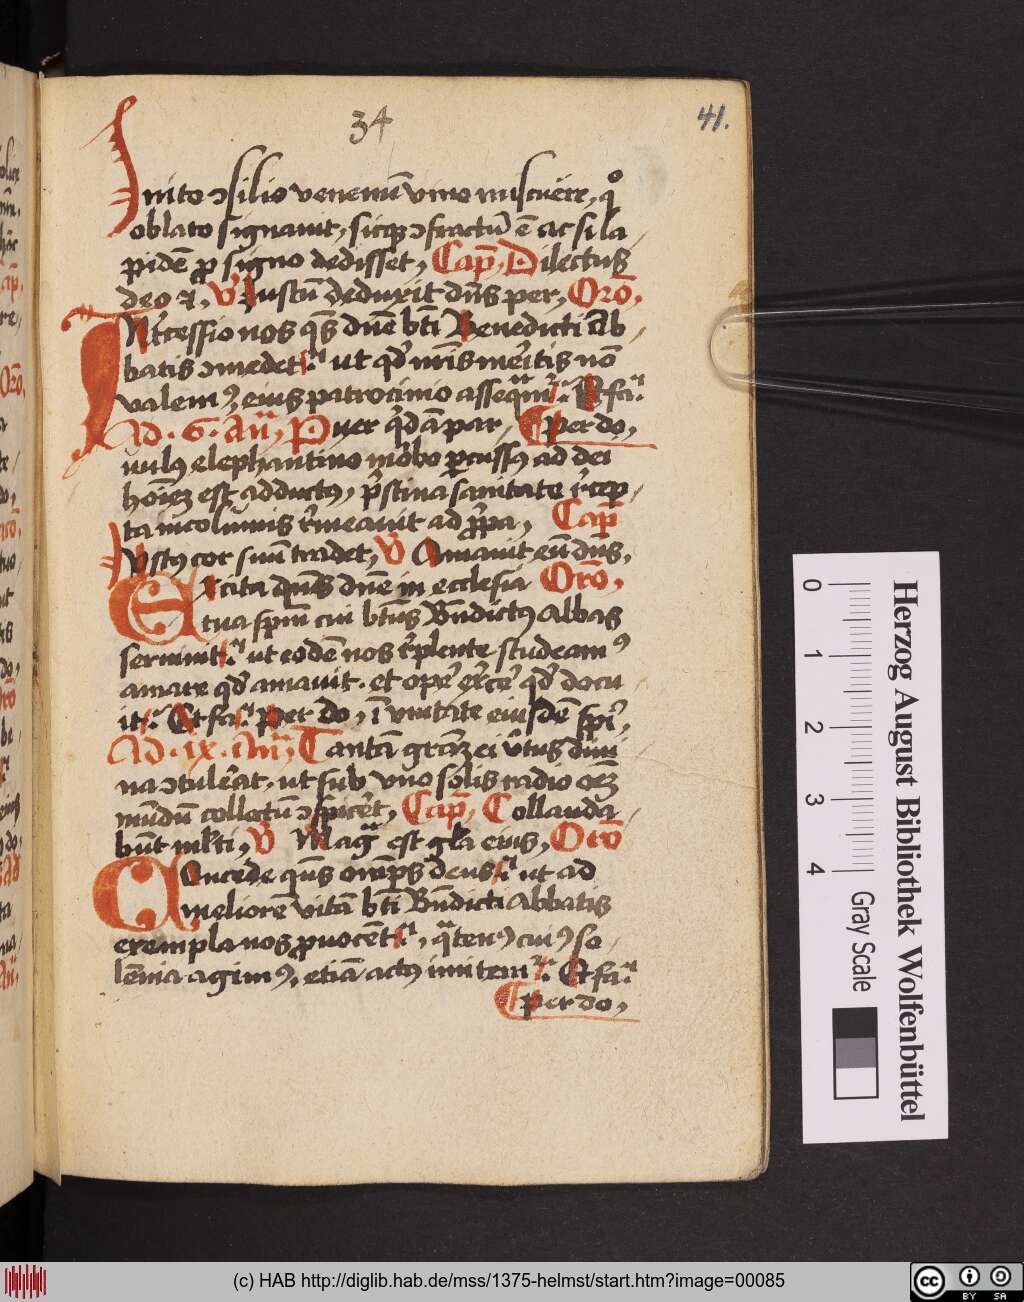 34
41.
Inito ꝯsilio venenū vino miscuēre, qͦ
oblato signauit, sicqꝫ ꝯfractū ē ac si la
pidē ꝓ signo dedisset, Cap̄, Dilectus
deo ⁊c, V̓ Iustū deduxit dn̄s per, Orō,
Int̓cessio nos q̄s dn̄e bt̄i Benedicti Ab
batis ꝯmedet᷑ ut qd̓ nr̄is mēitis nō
valemꝰ, eiꝰ patrocinio asseqͣm᷑. Et fa.
Ad. 6. an̄, Puer qͥdā par, Per do,
uulꝰ elephantino morbo ꝑcussꝰ ad dei
hoīez est adductꝰ, pͥstina sanitate r̓cep
ta incolumis r̓meauit ad ꝓp̓a, Cap̄
Iustꝰ cor suū tradet, V̓ Amauit eū dn̄s,
Excita q̄s dn̄e in ecclesia Orō,
tua sp̄m cui bt̄us Bn̄dictꝰ Abbas
seruiuit ut eodē nos r̓pleti studeamꝰ
amare qd̓ amauit. et ope̓ exe̓ce̓ qd̓ docu
it. Et fa. Per do, ī vnitate eiusdē sp̄i,
Ad. ix. an̄, Tantā gr̄az ei v̓tus diui
na ꝯtule̓at, ut sub vno solis radio oēz
mūdū collectū ꝯspice̓t, Cap̄, Collauda
būt ml̓ti, V̓ Magͣ est gl̄a eius, Orō
Concede q̄s om̄ps deus ut ad
meliorē vitā bt̄i Bn̄dicti Abbatis
exempla nos ꝓuocēt, qͣtenꝰ cuiꝰ so
lēnia agimꝰ, etiā actꝰ imitem᷑. Et fa.
Per do,
0 1 2 3 4
Gray Scale
Herzog August Bibliothek Wolfenbüttel
(c) HAB http://diglib.hab.de/mss/1375-helmst/start.htm?image=00085
cc BY SA